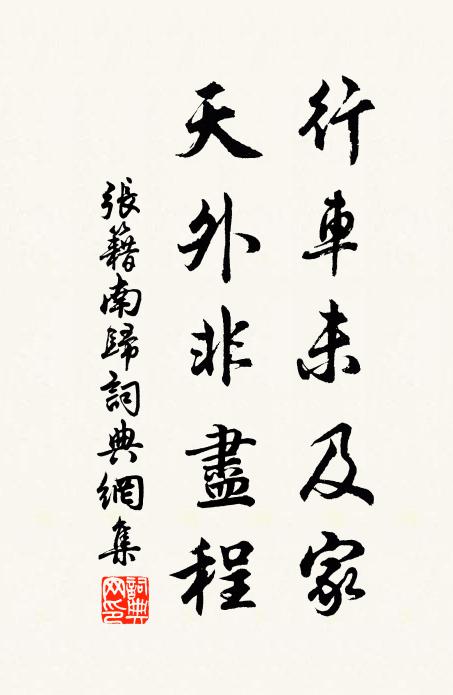 行車未及家
天外非盡程
張籍南歸詞典網集
詞典網印